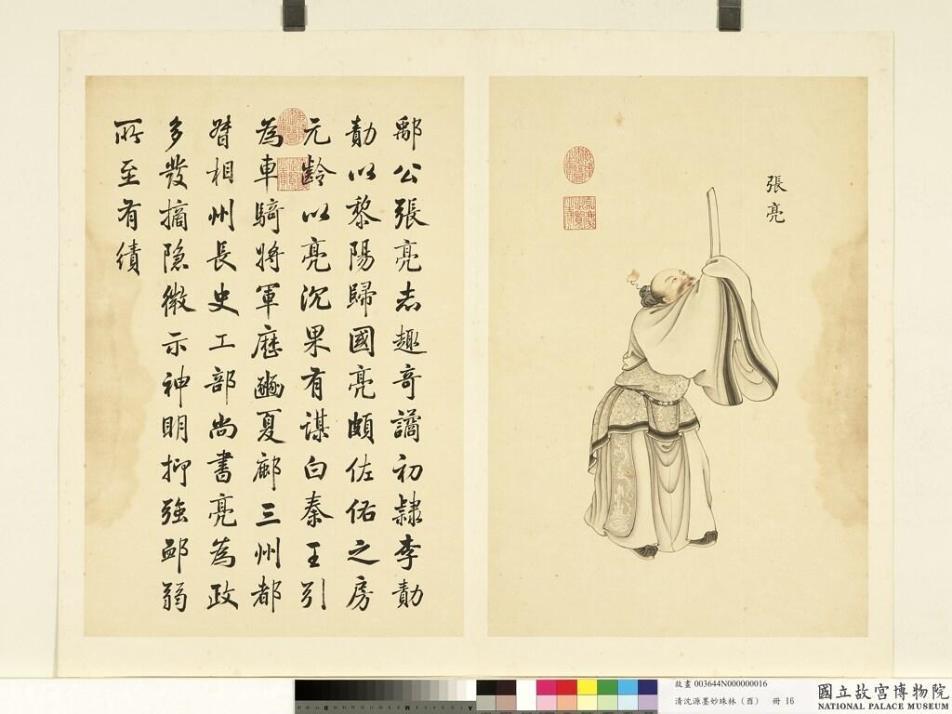 張亮
鄅公張亮志趣奇譎初隸李勣
勣以黎陽歸國亮頗佐佑之房
元齡以亮沉果有謀白秦王引
為車騎將軍歷豳夏鄜三州都
督相州長史工部尚書亮為政
多發摘隐微示神明抑強卹弱
所至有績
故畫 003644N000000016
清沈源墨妙珠林(酉) 冊 16
國立故宮博物院
NATIONAL PALACE MUSEUM